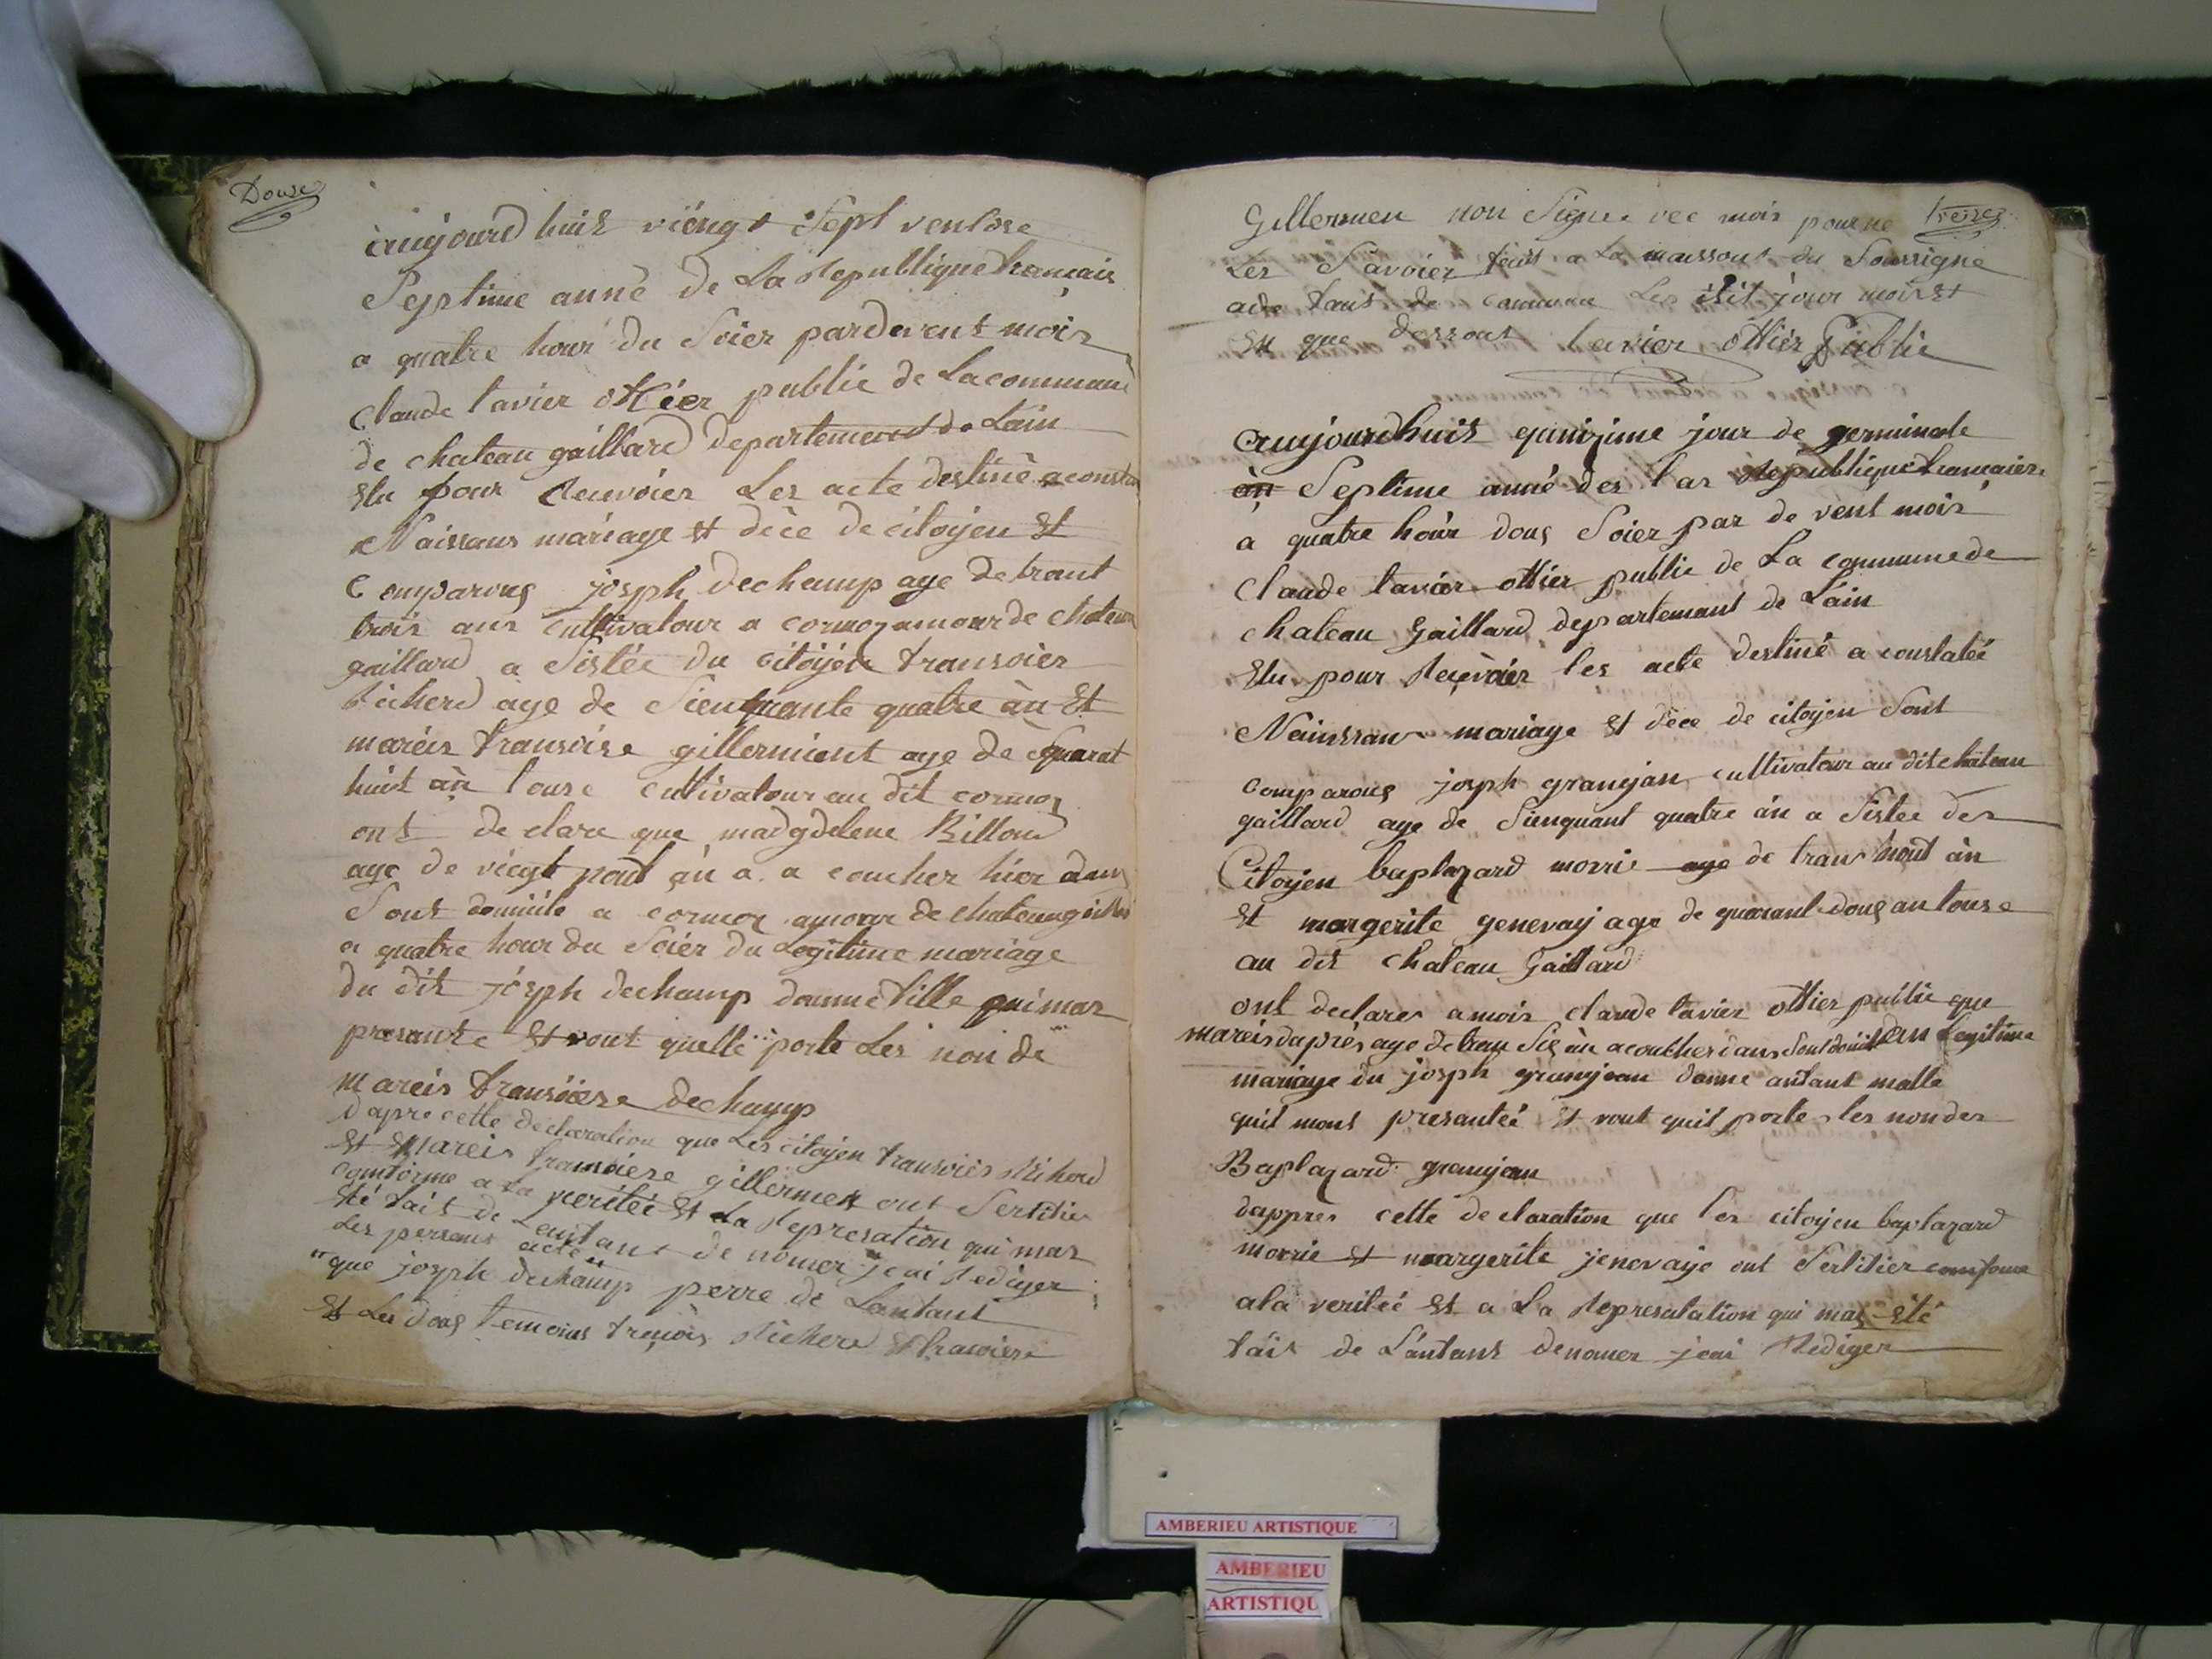 Douze
aujourd huis viengt Sept ventose
Septime anné de La Republique francais
a quatre hour du Soier pardevent mois
Claude tavier offiier public de La commune
de chateau gaillard departement de Lain
Elu pour Recevoier Les acte destiné a consta
Naissans mariage et dèce de citoyen Et
Comparous joseph dechamp age de trant
trois ans cultivatour a cormoz amour de chateau
gaillard a Sistée du citoÿen transoies
Richerd age de Sienquante quatre àn Et
mareis transoise gillermient age de quarat
huit àn touse cultivatour au dit cormoz
ont de clare que madgdelene Billoud
age de viegt nout àn a a coucher hier dans
Sont domicile a cormoz amour de chateaugaillard
a quatre hour du Soiér du Legitime mariage
du dit joseph dechamp danne fille qui mas
presante Et vout quelle porte Les non de
mareis transoiese dechamp
dapre cette declaration que Les citoyen transoies Richerd
Et Mareis transoiese gillermen ont Sertifie
comforme a La veritée Et La Represation qui mas
Eté fait de Lentant de nomer jeai Rediger
Les persans acte
que joseph dechamp perre de Lantant
Et Les dous temoins transois Richerd Et transoiese
treize
Gillermen non Signe vec mois pour ne
Les Savoier fait a La maissont du Soussigne
ade tant de commune Les dit jour mois Et
Et que dessout tavier offier Public
aujourdhuis quinzime jour de germinale
an Septime anné des Las Republique francaise
a quatre hour dous Soier par de vent mois
Claude tavier offier public de La commune de
chateau Gaillard departemant de Làin
Elu pour Recevoier les acte destiné a constatéé
Naissans mariage Et dèce de citoyen Sont
comparous joseph granjan cultivatour au dit chateau
gaillard age de Sienquant quatre àn a Sistée des
Citoyen baptazard morrie age de tran nout àn
Et margerite genevay age de quarant dous an touse
au dit chateau Gaillard
ont declares a mois claude tavier offier public que
mareis daprès age de tran Sis àn acoucher dans Sont domicile du Legitime
mariage du joseph granjean danne antant malle
quil mont presantéé Et vout quil porte les non des
Baptazard granjean
dappres cette declaration que les citoyen baptazard
morrie Et margerite jenevaye ont Sertifier comforme
ala veritéé Et a La Represatation qui mas Eté
fait de Lantant denomer jeai Rediger
AMBERIEU ARTISTIQUE
AMBERIEU
ARTISTIQU